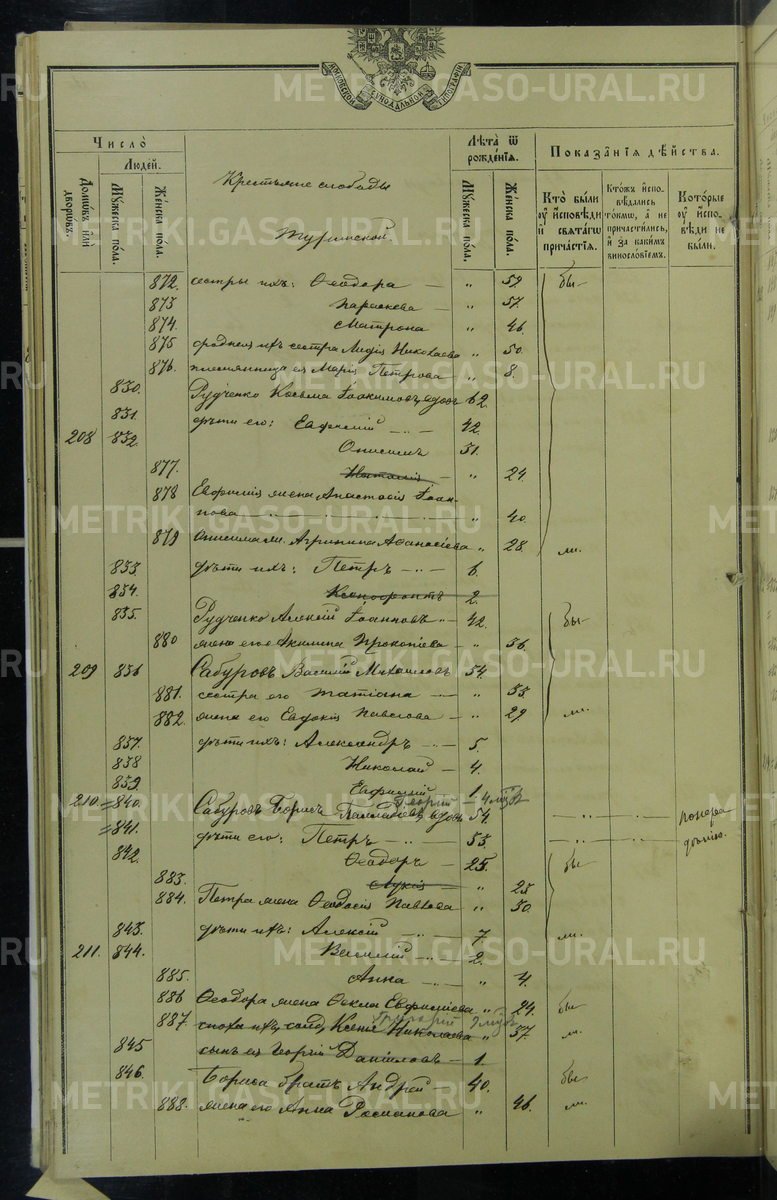 МОСКОВСКОЙ СѴНОДАЛЬНОЙ ТИПОГРАФІИ
Число̀
Людей.
Домѡвъ или дворѡвъ.
Мꙋжеска пола.
Женска пола.
Крестьяне слободы
Туринской
Лѣта ѿ рожденїѧ.
Мꙋжеска пола.
Женска пола.
Показанїѧ дѣйства.
Кто̀ были ᲂу҆ исповѣди и свѧтагѡ причастїѧ.
Кто́жъ исповѣдались то́кмѡ, а не причастились, и за какимъ винословїемъ.
Которые ᲂу҆ исповѣди не были.
872. сестры ихъ: Ѳеодора — " 59. бы-
873 Параскева — " 57.
874. Матрона " 46.
875 сестра Лидія Николаева " 50.
876. племянница ея Марія Петрова " 8.
830. Рудченко Косьма Іоакимовъ, вдовъ 62.
831. дѣти его: Евфимій 42.
208 832. Онисимъ 31.
877. Наталія — " 24.
878 Евфимія жена Анастасія Іоан-
нова " 40.
879 Онисима ж. Агрипина Аѳанасіева " 28. ли.
833. дѣти ихъ: Петръ 6.
834. Ксенофонтъ 2.
835. Рудченко Алексій Іоанновъ 42. бы-
880 жена его Акилина Прокопіева — " 36.
209 836 Сабуровъ Василій Михаиловъ 54.
881. сестра его Татіана — " 55
882. жена его Евдокія Павлова — " 29. ли.
837. дѣти ихъ: Александръ 5.
838 Николай — 4.
839. Евфимій 1.
Георгій — 4 мѣс
210. 840. Сабуровъ Борисъ вдовъ 54. по нера
841. дѣти его: Петръ 33. дѣнію.
842. Ѳеодоръ 25. бы
883. Лукія " 25
884. Петра жена Ѳеодосія Павлова " 30.
843. дѣти ихъ: Алексій 7 ли.
211. 844. Василій 2.
885. Анна " 4.
886 Ѳеодора жена Ѳекла Евфиміева " 24. бы
Григорій 9 мѣс
887. сноха ихъ, солд. Ксенія Николаева " 37. ли.
845 сынъ ея Георгій Даніиловъ — 1.
846. Бориса братъ Андрей — 40. бы
888. жена его Анна Романова " 46. ли.
METRIKI.GASO-URAL.RU